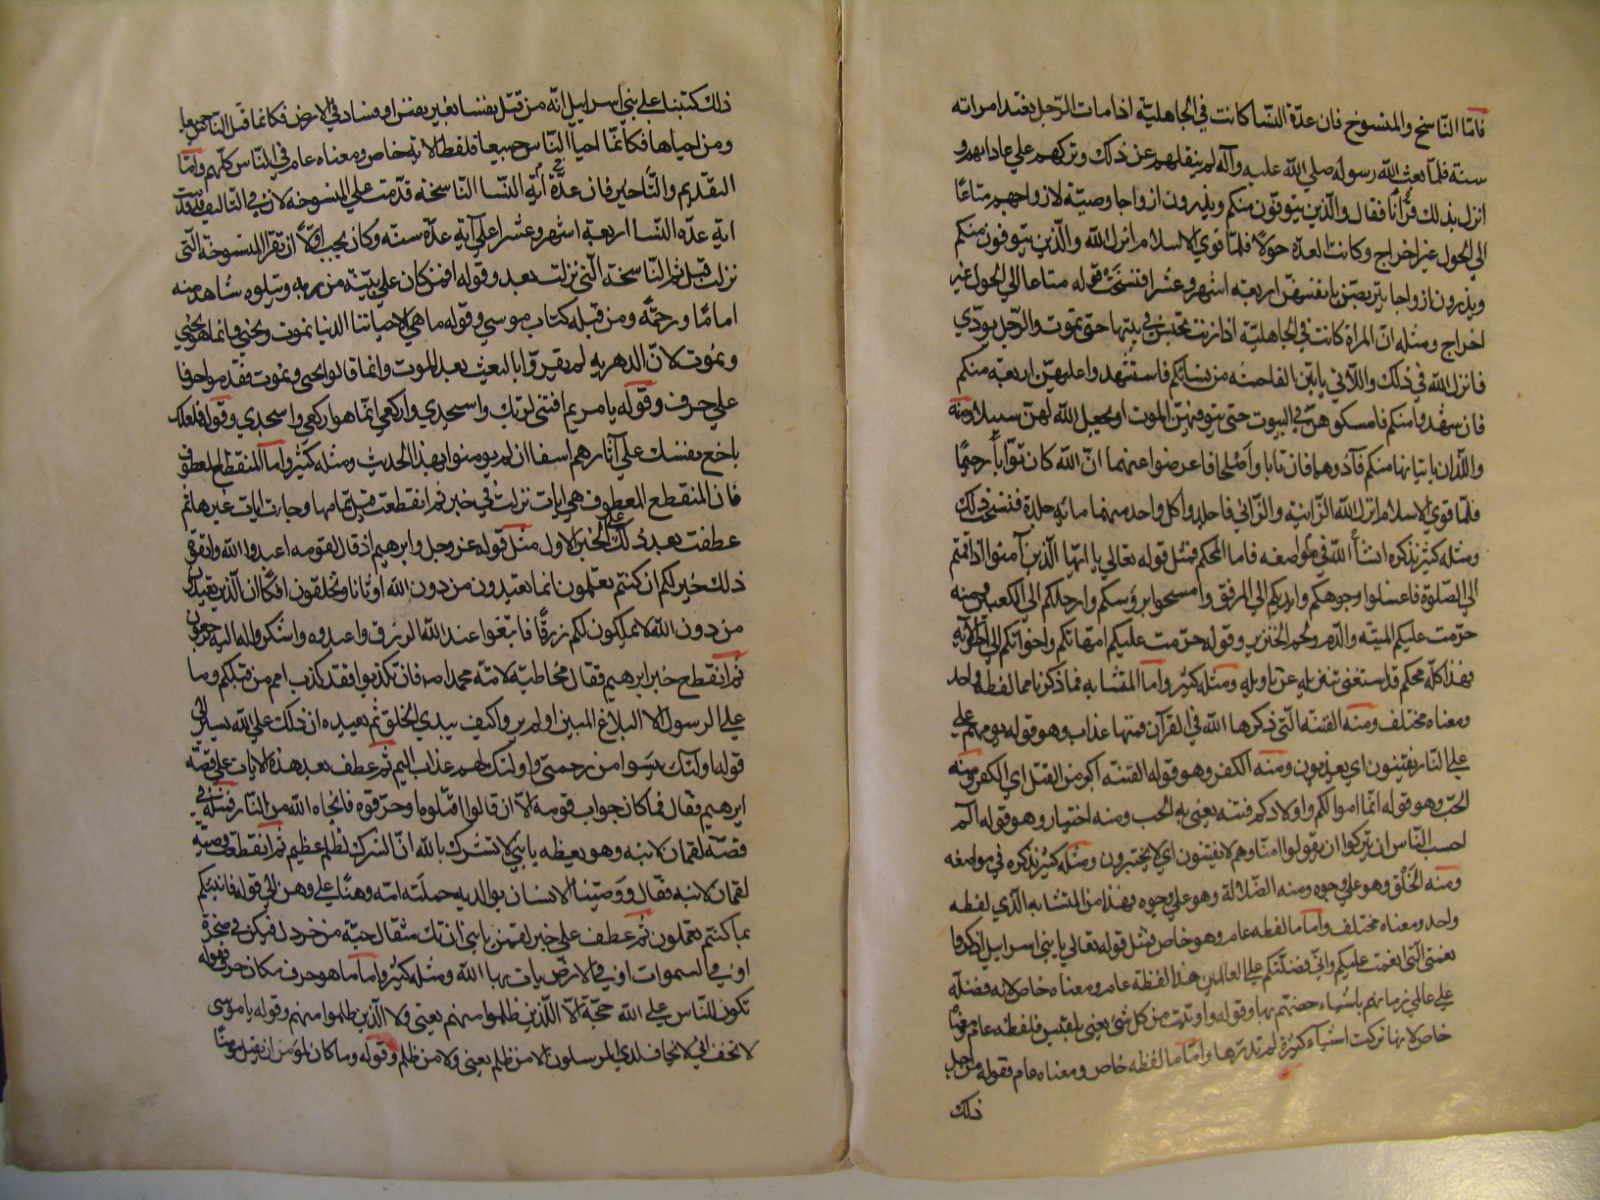 فامّا الناسخ والمنسوخ فان عدّة النسّا كانت في الجاهليّة اذا مات الرّجل يعتد امراته
سنة فلمّا بعث الله رسوله صلي الله عليه وآله لم ينقلهم عن ذلك وتركهم علي عاداتهم و
انزل بذلك قرآنًا فقال والّذين يتوفّون منكم ويذرون ازواجا وصيّة لازواجهم متاعًا
الي الحول غير اخراج وكانت العدة حولًا فلمّا قوي الاسلام انزل الله والّذين يتوفون منكم
ويذرون ازواجا يتربصّن بانفسهنّ اربعة اشهر وعشرا فنسخت قوله متاعا الي الحول غير
اخراج ومثله انّ المراة كانت في الجاهليّة اذا زنت تحبس في بيتها حتى تموت والرّجل يوذي
فانزل الله في ذلك واللّاتي ياتين الفاحشه من نسائكم فاستشهدوا عليهنّ اربعة منكم
فان شهدوا فامسكوهنّ في البيوت حتى يتوفيهنّ الموت او يجعل الله لهنّ سبيلا ومنه
واللّذان ياتيانها منكم فآذوهما فان تابا واصلحا فاعرضوا عنهما انّ الله كان توّابًا رحيمًا
فلمّا قوي الاسلام انزل الله الزّانية والزّاني فاجلدوا كل واحد منهما مائة جلدة فنسخت ذلك
ومثله كثير نذكره انشأ الله في مواضعه فاما المحكم فمثل قوله تعالي يا ايّها الّذين آمنوا اذا قمتم
الي الصّلوة فاغسلوا وجوهكم وايديكم الي المرفق وامسحوا برؤسكم وارجلكم الي الكعبين ومنه
حرّمت عليكم الميتة والدّم ولحم الخنزير وقوله حرّمت عليكم امّهاتكم واخوتكم الي آخر الآية
فهذا كلّه محكم قد استغني بتنزيله عن تاويله ومثله كثير وامّا المتشابه فما ذكرنا مما لفظه واحد
ومعناه مختلف ومنه الفتنة الّتي ذكرها الله في القرآن فمنها عذاب وهو قوله يوم هم علي
علي النّار يفتنون اي يعذبون ومنه الكفر وهو قوله الفتنة اكبر من القتل اي الكفر ومنه
الحبّ وهو قوله انّما اموالكم واولادكم فتنة يعني به الحب ومنه اختبار وهو قوله الم
احسب النّاس ان يتركوا ان يقولوا امنّا وهم لا يفتنون اي لا يختبرون ومثله كثير نذكره في مواضعه
ومنه الخلق وهو علي وجوه ومنه الضّلالة وهو علي وجوه فهذا من المتشابه الّذي لفظه
واحد ومعناه مختلف وامّا ما لفظه عام وهو خاص فمثل قوله تعالي يا بني اسرايل اذكروا
نعمتي الّتي انعمت عليكم وانّي فضّلتكم علي العالمين هذا لفظه عام ومعناه خاص لانه فضله
علي عالمي زمانهم باشياء خصهم بها وقوله واوتيت من كل شئ يعني بلقيس فلفظه عام ومعناه
خاص لانها تركت اشياء كثيرة لم تدبّرها وامّا ما لفظه خاص ومعناه عام فقوله من اجل
ذلك
ذلك كتبنا علي بني اسرايل انّه من قتل نفسا بغير نفس او فساد في الارض فكانما قتل النّاس جميعا
ومن احياها فكأنمّا احيا النّاس جميعا فلفظ الآية خاص ومعناه عام في النّاس كلّهم وامّا
التقديم والتّاخير فان عدّة آية النسّا الناسخة قدّمت علي المنسوخة لان في التاليف قد قدمت
اية عدّه النسّا اربعة اشهر وعشرا علي آية عدّة سنة وكان يجب اوّلًا ان تقرا المنسوخة الّتي
نزلت قبل ثم النّاسخة الّتي نزلت بعد وقوله افمن كان علي بيّنة من ربه ويتلوه شاهد منه
امامًا ورحمةً ومن قبله كتاب موسي وقوله ما هي الا حياتنا الدنيا نموت ونحيي وانما هو نحيي
ونموت لانّ الدهريه لم يقرّوا بالبعث بعد الموت وانما قالوا نحيي ونموت فقدّموا حرفا
علي حرف وقوله يا مريم اقنتي لربّك واسجدي واركعي انمّا هو اركعي واسجدي وقوله فلعلك
باخع نفسك علي آثارهم اسفا ان لم يومنوا بهذا الحديث ومثله كثير واما المنقطع المعطوف
فان المنقطع المعطوف هي ايات نزلت في خبر ثم انقطعت قبل تمامها وجائت ايات غيرها ثم
عطفت بعد ذلك علي الخبر الاول مثل قوله عزّ وجل وابرهيم اذ قال لقومه اعبدوا الله واتقوه
ذلك خير لكم ان كنتم تعلمون انما تعبدون من دون الله اوثانا وتخلقون افكًا ان الّذين تعبدون
من دون الله لا يملكون لكم رزقًا فابتغوا عند الله الرزق واعبدوه واشكروا له اليه ترجعون
ثم انقطع خبر ابرهيم فقال مخاطبة لامّة محمد فان تكذبوا فقد كذب امم من قبلكم وما
علي الرسول الا البلاغ المبين اولم يروا كيف يبدي الخلق ثم يعيده ان ذلك علي الله يسير الي
قوله اولئك يئسوا من رحمتي واولئك لهم عذاب اليم ثم عطف بعد هذه الايات علي قصّة
ابرهيم فقال فما كان جواب قومه الّا ان قالوا اقتلوه او حرّقوه فانجاه الله من النّار فمثله في
قصّة لقمان لابنه وهو يعظه يا بنيّ لا تشرك بالله انّ الشرك لظلم عظيم ثم انقطعت وصيّة
لقمان لابنه فقال ووصيّنا الانسان بوالديه حملته امّه وهنًا علي وهن الي قوله فانبئكم
بما كنتم تعملون ثم عطف علي خبر لقمن يا بني ان تك مثقال حبّة من خردل فتكن في صخرة
او في السموات او في الارض يات بها الله ومثله كثير وامّا ما هو حرف مكان حرف فقوله
تكون للنّاس علي الله حجّة الّا الّذين ظلموا منهم يعني ولا الّذين ظلموا منهم وقوله يا موسي
لا تخف انّي لا يخاف لديّ المرسلون الا من ظلم يعني ولا من ظلم وقوله وما كان لمؤمن ان يقتل مؤمنًا